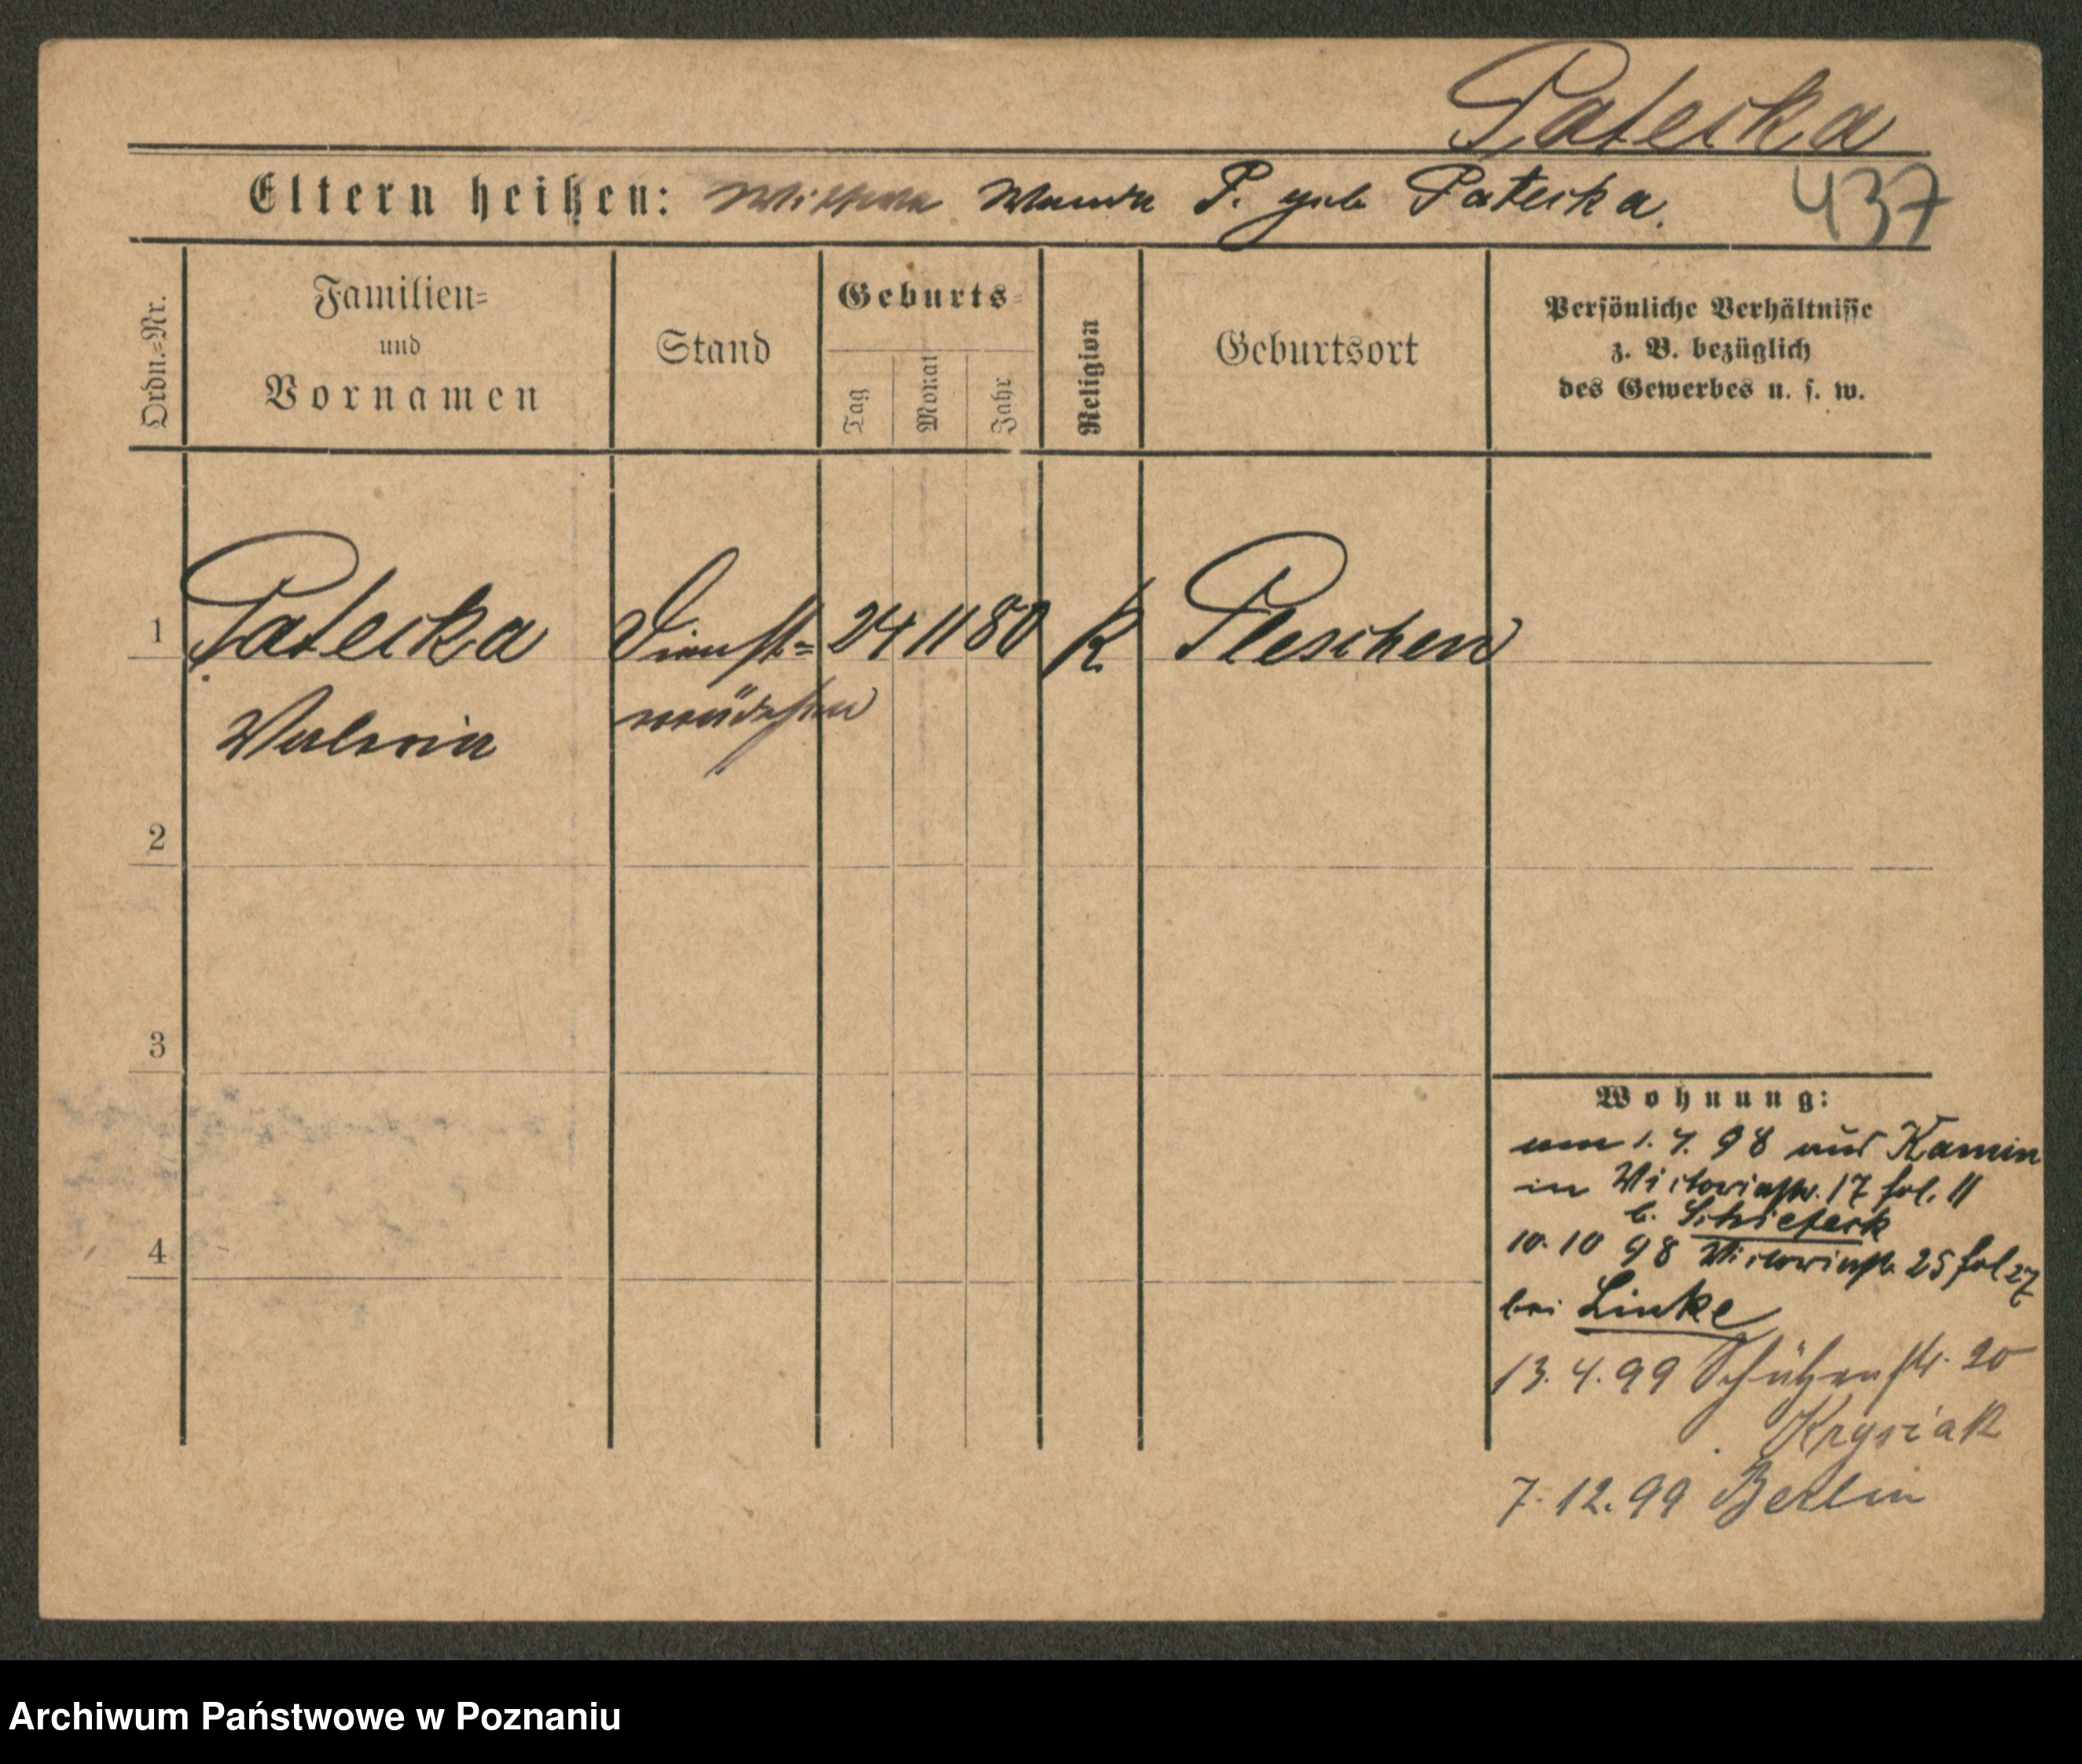 Patecka
Eltern heißen: Wanda P. geb Patecka.
437
Ordn.=Nr.
Familien=
und
Vornamen
Stand
Geburts=
Tag
Monat
Jahr
Religion
Geburtsort
Persönliche Verhältnisse
z. B. bezüglich
des Gewerbes u. s. w.
1 Patecka Dienst= 24 11 80 K Pleschen
Valeria mädchen
2
3
4
Wohnung:
am 1. 7. 98 aus Kamin
in Victoriastr. 17 fol. 11
b.
10. 10 98 Victoriastr 25 fol 27
bei Linke
13. 4. 99 Schützenstr. 20
Krysiak
7. 12. 99 Berlin
Archiwum Państwowe w Poznaniu